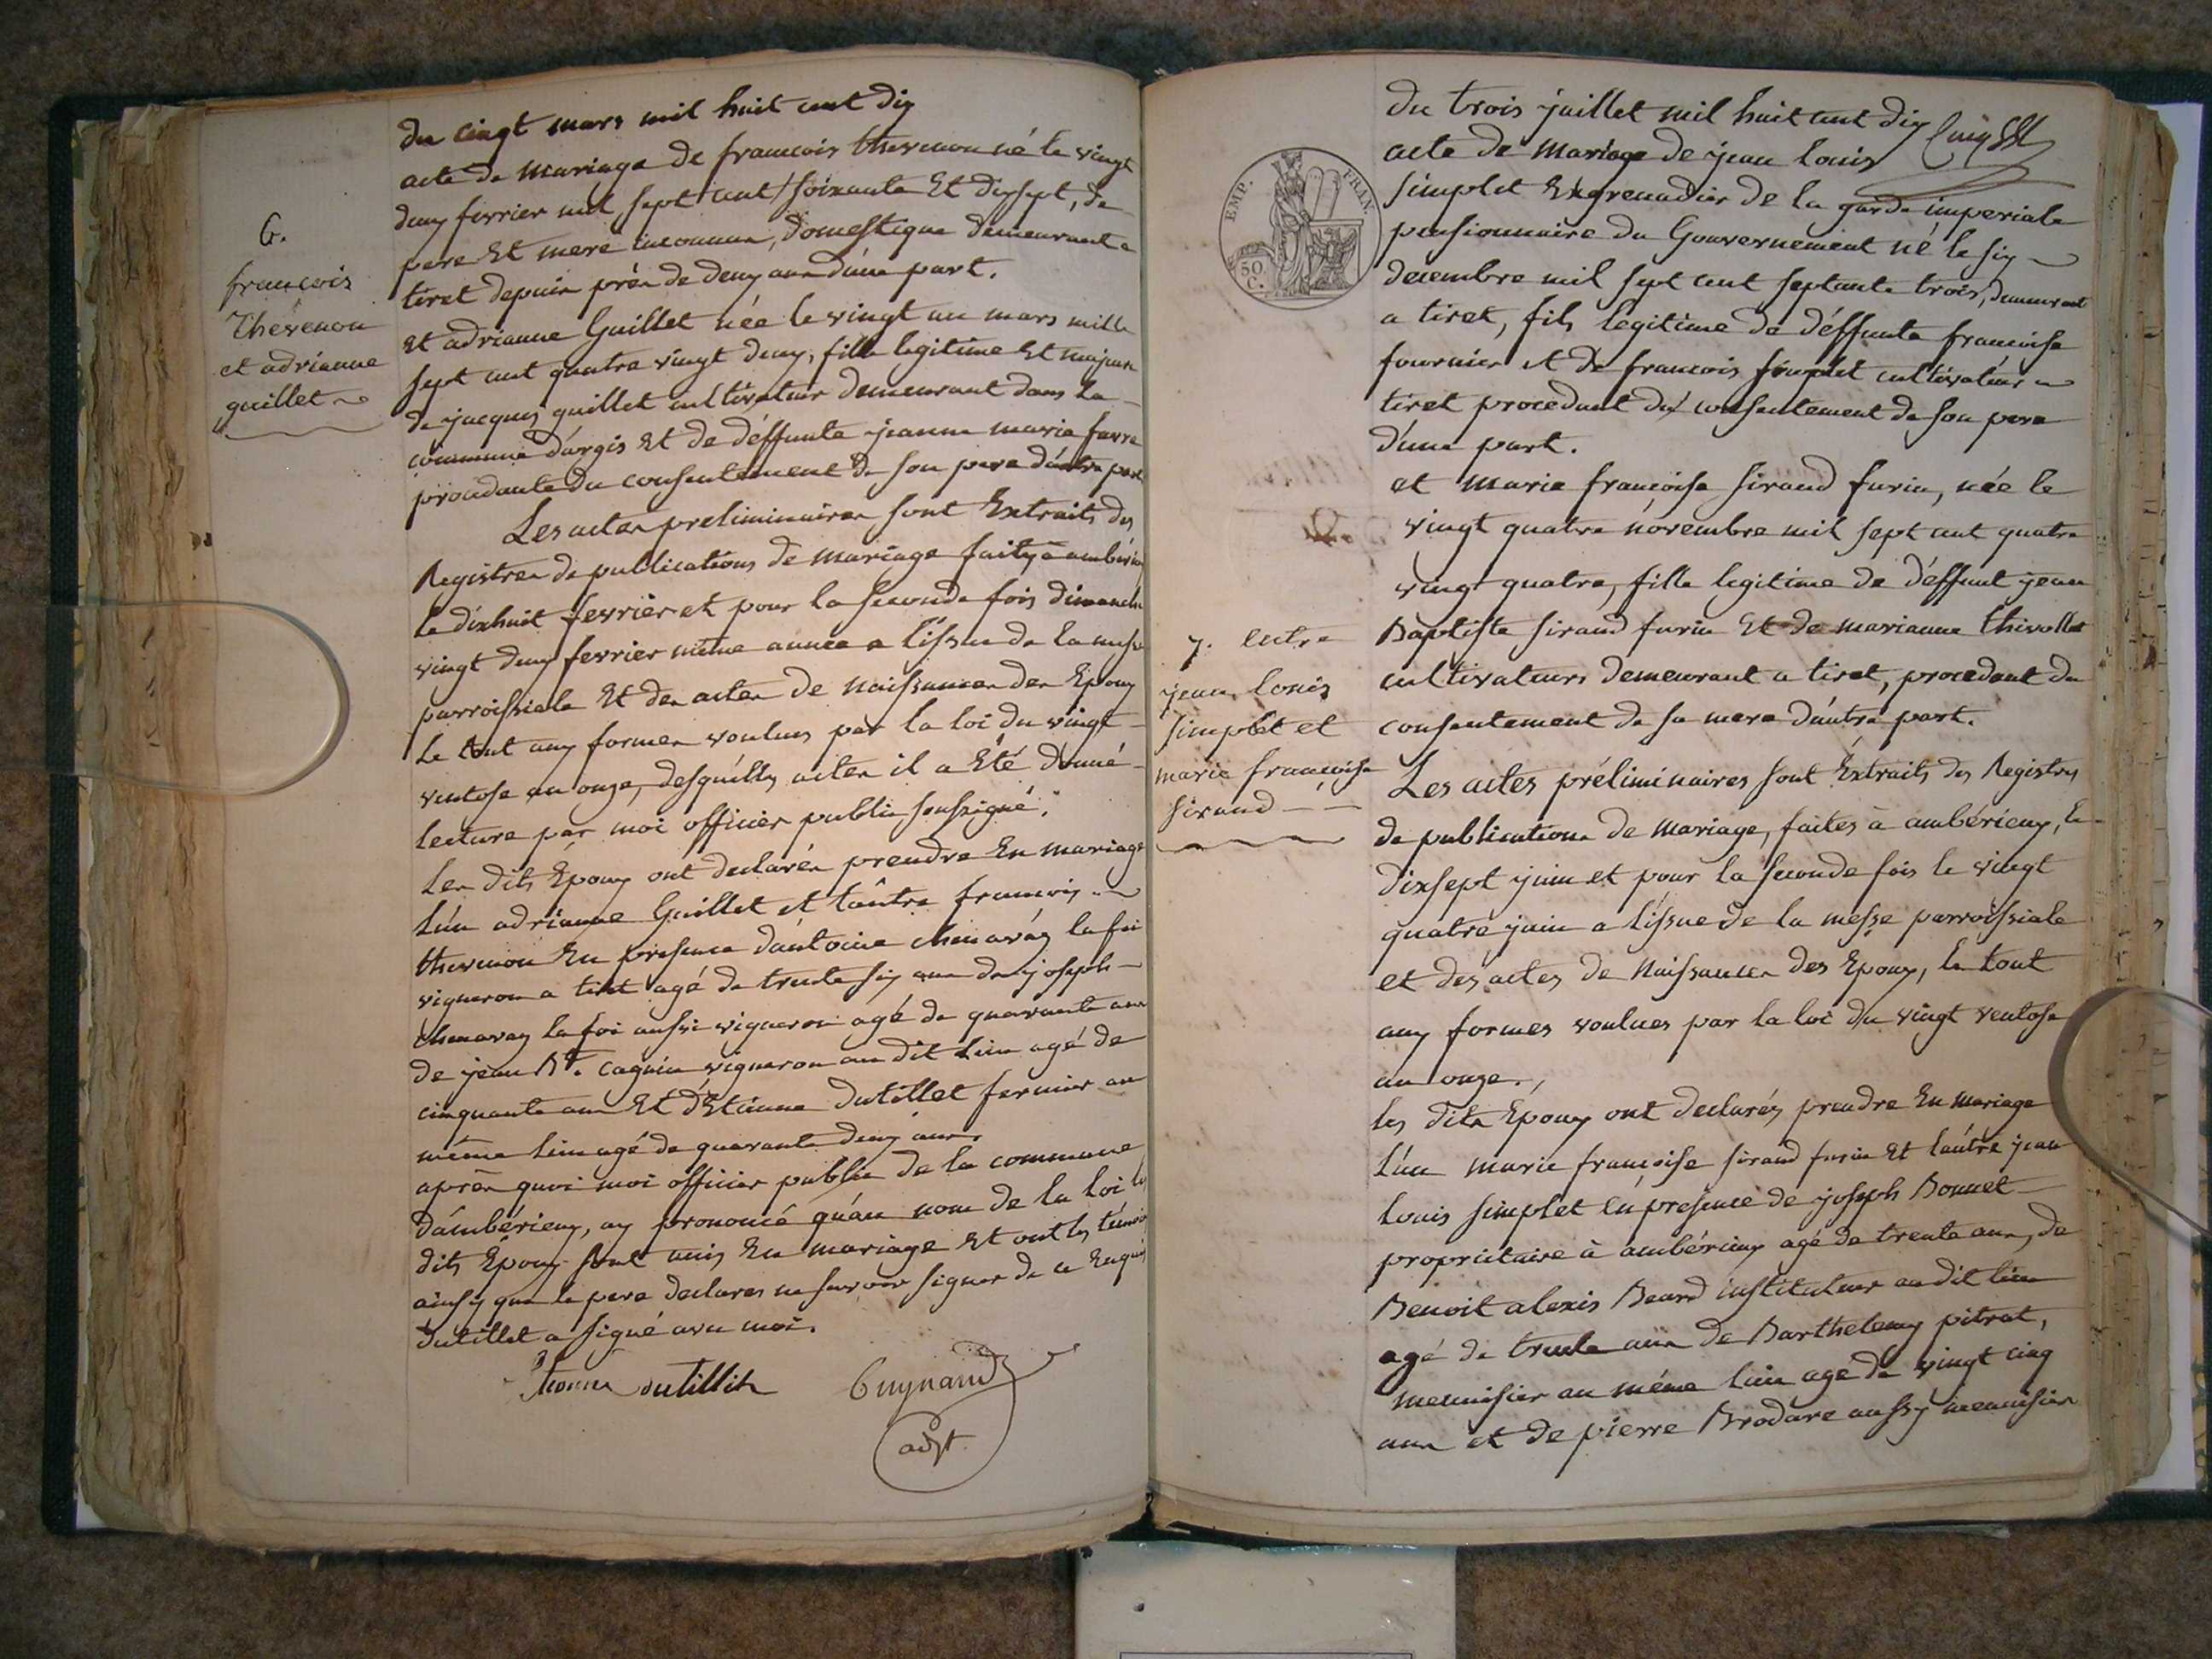 du cinqt mars mil huit cent dix
acte de mariage de francois thevenon né le vingt
deux fevrier mil sept cent soixante Et dixsept, de
pere Et mere inconnus, domestique demeurant a
tiret depuis près de deux ans d'une part.
et adrianne Guillet née le vingt un mars mille
sept cent quatre vingt deux, fille legitime Et majeure
de jacques guillet cultivateur demeurant dans la
commune d'argis Et de déffunte jeanne marie favre
procedante du consentement de son pere d'autre part
Les actes preliminaires sont Extraits des
Registres de publications de mariage faitz à ambérieux
le dixhuit fevrier et pour la seconde fois dimanche
vingt deux fevrier même année a l'issue de la messe
parroissiale Et des actes de naissances des Epoux
le tout aux formes voulues par la loi du vingt
ventose an onze, desquélls actes il a Eté donné
lecture par moi officier public soussigné.
Les dits Epoux ont declarés prendre En mariage
L'un adrianne Guillet et l'aûtre francois
thevenon En presence d'antoine chenavaz la foi
vigneron a tiret agé de trente six ans de joseph
chenavaz la foi aussi vigneron agé de quarante ans
de jean Bte. cagnin vigneron au dit Lieu agé de
cinquante ans Et d'Etienne dutillet fermier au
même Lieu agé de quarante deux ans.
après quoi moi officier public de la commune
d'ambérieux, ay prononcé qu'au nom de la Loi les
dits Epoux sont unis En mariage Et ont les témoins
ainsy que le pere declares ne savoir signer de ce Enquis
dutillet a signé avec moi.
Etienne dutillih Guynand
adjt
6.
francois
Thévenon
et adrianne
guillet
Du trois juillet mil huit cent dix
acte de mariage de jean louis
simplet Exgrenadier de la garde imperiale
pensionnaire du Gouvernement né le six
decembre mil sept cent septante trois, demeurant
a tiret, fils legitime de déffunte francoise
fournier et de francois simplet cultivateur
tiret procedant du consentement de son pere
d'une part.
et marie françoise sirand furin, née le
vingt quatre novembre mil sept cent quatre
vingt quatre, fille legitime de déffunt jean
Baptiste sirand furin Et de marianne thivollet
cultivateurs demeurant a tiret, procedant du
consentement de sa mere d'autre part.
Les actes préliminaires sont Extraits des Registres
de publications de mariage, faites à ambérieux, le
dixsept juin et pour la seconde fois le vingt
quatre juin a l'issue de la messe parroissiale
et des actes de Naissances des Epoux, le tout
aux formes voulues par la loi du vingt ventose
an onze.
les dits Epoux ont declarés prendre En mariage
L'un marie françoise sirand furin Et l'autre jean
Louis simplet en presence de joseph Bonnet
propriétaire à ambérieux agé de trente ans, de
Benoit alexis Beard instituteur au dit lieu
agé de trente ans de Barthelemy pitrat,
menuisier au même lieu age de vingt cinq
ans et de pierre Brodare aussy menuisier
EMP. FRAN.
50
C.
7. entre
jean louis
simplet et
marie françoise
sirand